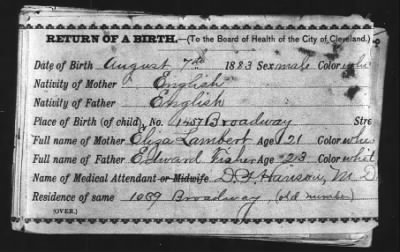 RETURN OF A BIRTH.—(To the Board of Health of the City of Cleveland.)
Date of Birth August 7th 1883 Sex male Color whi
Nativity of Mother English
Nativity of Father English
Place of Birth (of child), No. 1457 Broadway Stre
Full name of Mother Eliza Lambert Age 21 Color whi
Full name of Father Edward Fisher Age 23 Color whit
Name of Medical Attendant or Midwife D. H. Hanson, M D
Residence of same 1089 Broadway (old number)
(OVER.)